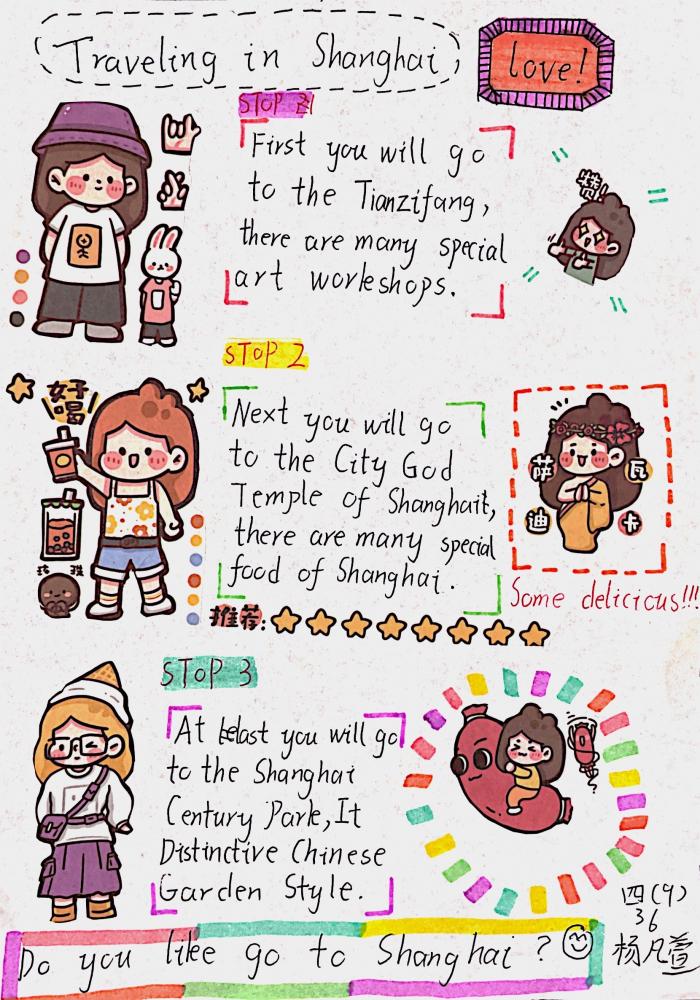 Traveling in Shanghai
love!
STOP 1
First you will go
to the Tianzifang,
there are many special
art workshops.
赞!
STOP 2
女子
喝
Next you will go
to the City God
Temple of Shanghait,
there are many special
food of Shanghai.
萨 瓦
迪 卡
Some delicious!!!
推荐:
STOP 3
At last you will go
to the Shanghai
Century Park, It
Distinctive Chinese
Garden Style.
Do you like go to Shanghai?
四(9)
36
杨凡萱